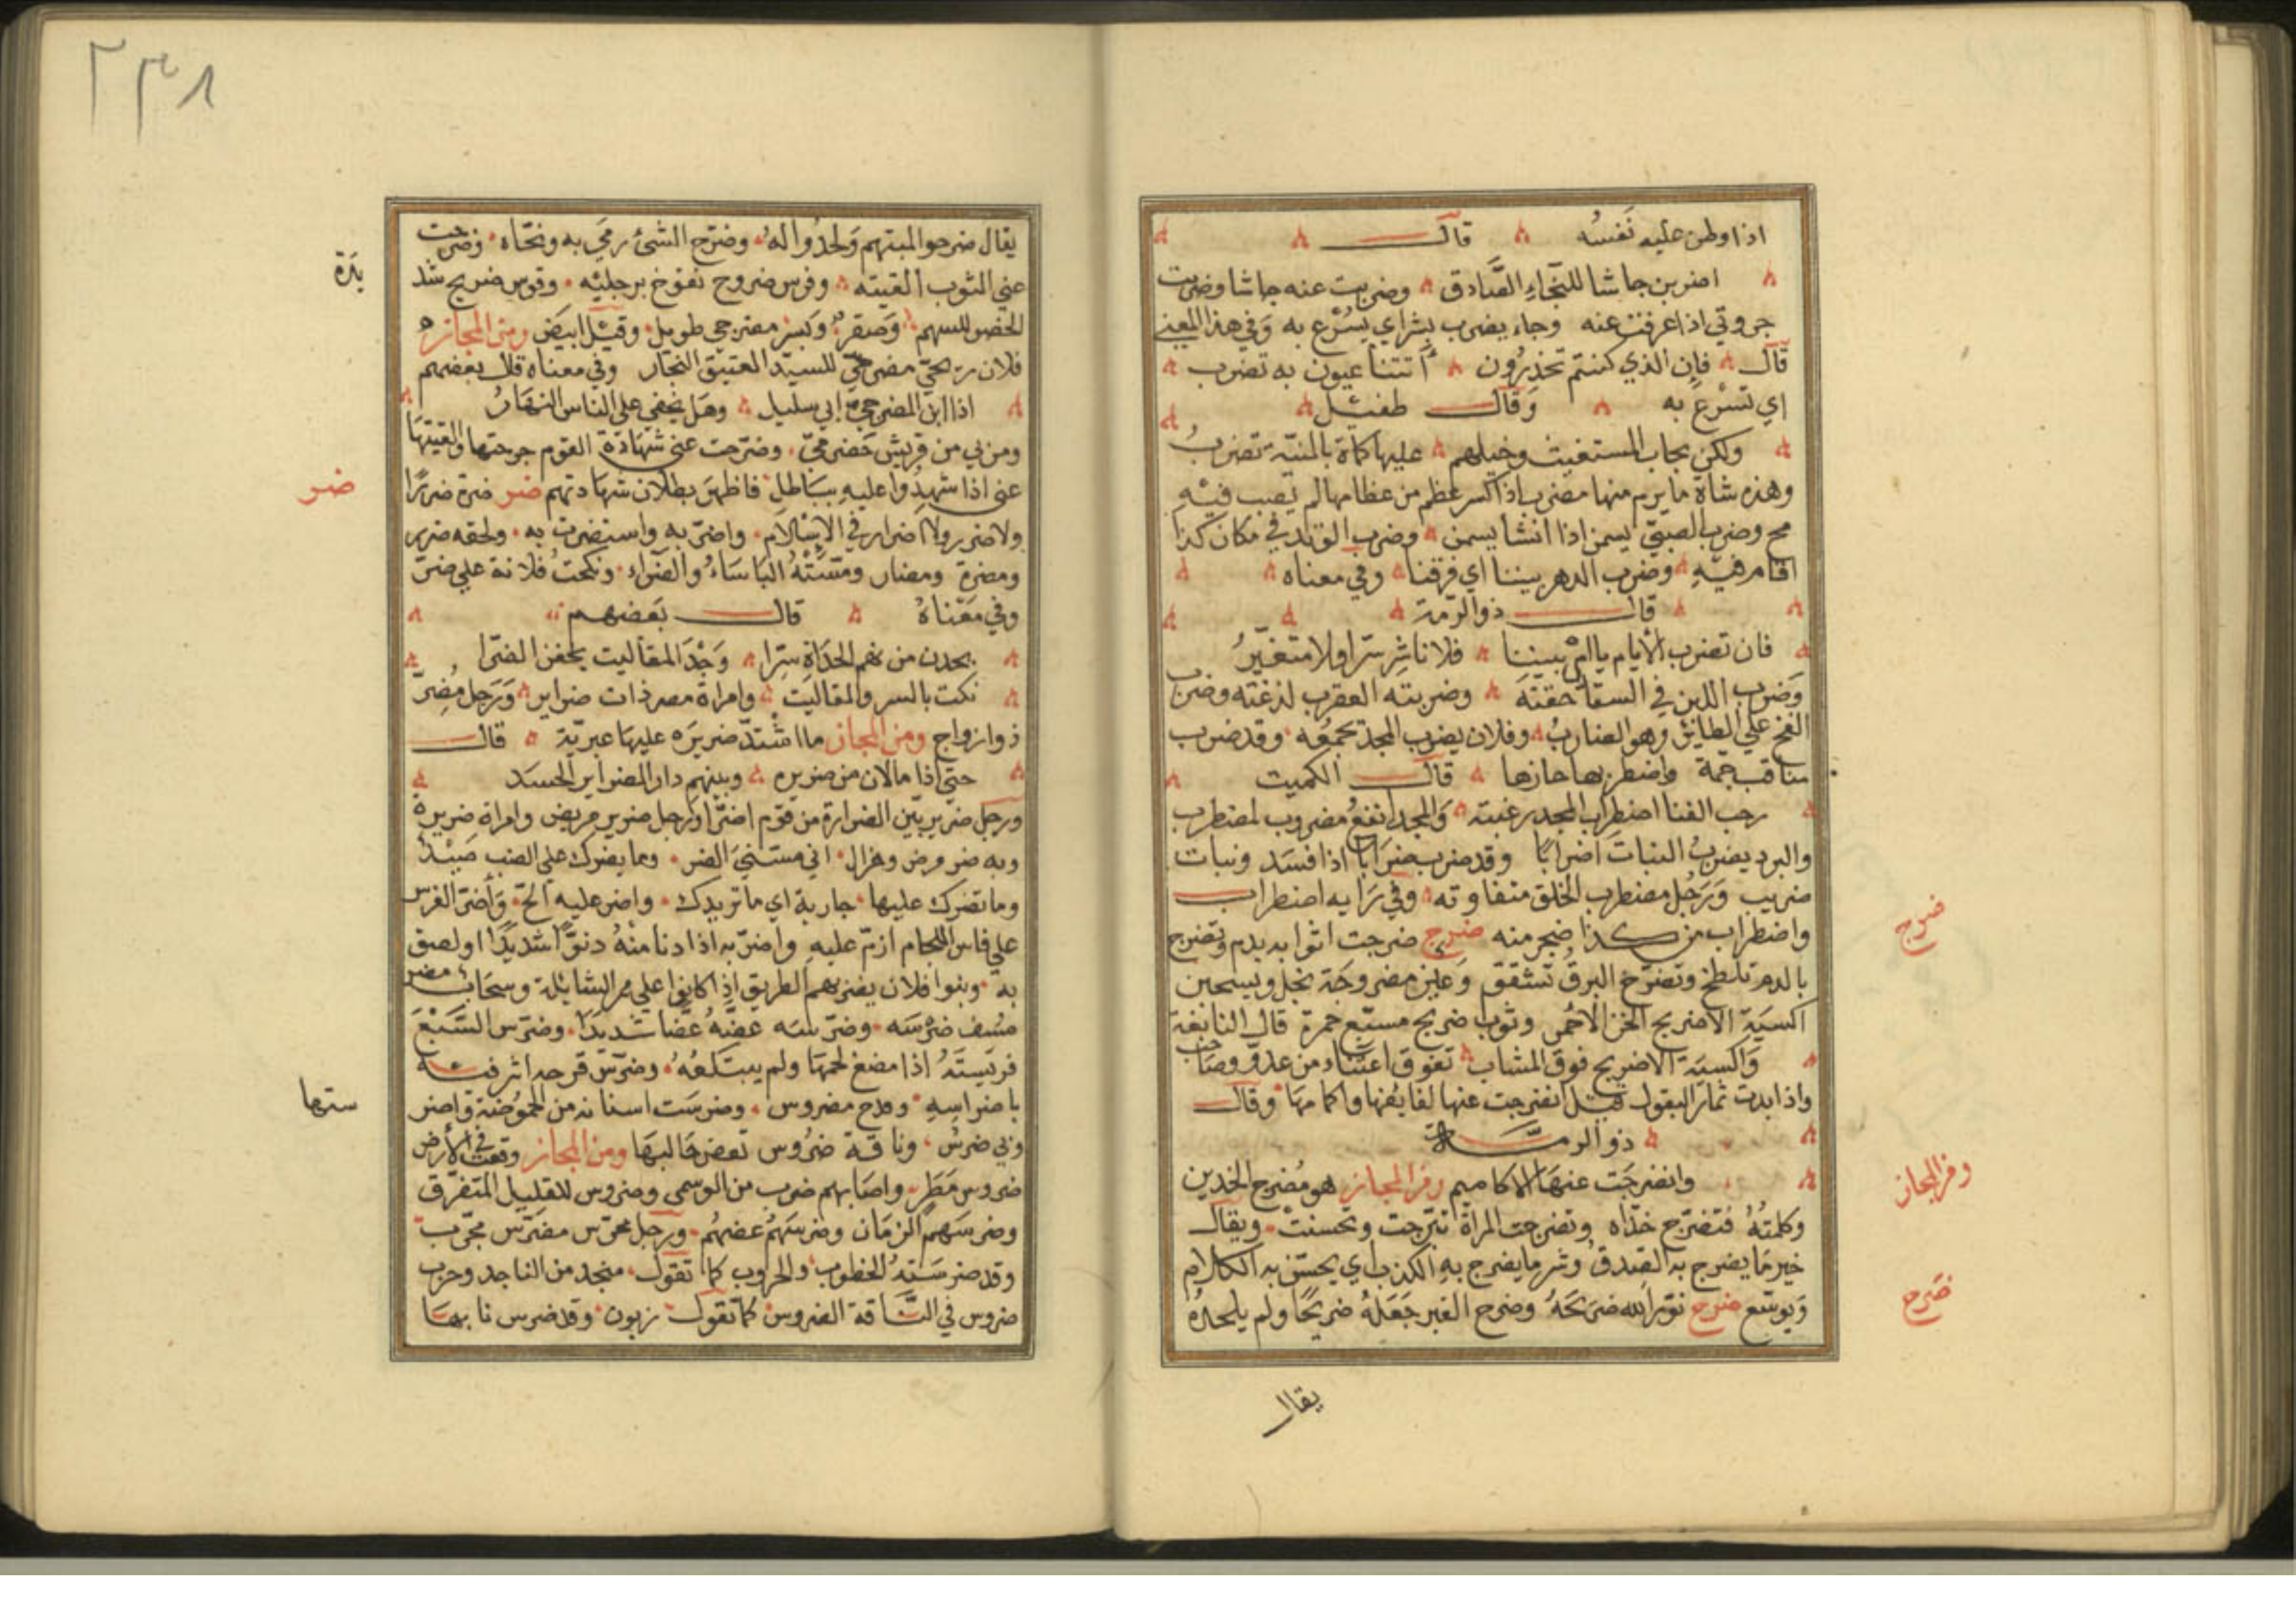 اذا وطن عليه نفسُه قال
اضربن جاشا للنجاء الصّادق وضربت عنه جاشا وضربت
جروتي اذا عرفت عنه وجاء يضرب بشر اي يُسْرع به وفي هذا المعنى
قال فإن الذي كنتم تحذرُون أتتنا عيون به تضرب
اي تُسْرع به وقال طفيل
ولكن يجاب المستغيث وخيلهم عليها كماة بالمنيّة تضربُ
وهذه شاة ما يرم منها مضرب اذا كسر عظم من عظامها لم يصب فيه
مخ وضرب الصبيّ ليسمن اذا انشا يسمن وضرب الوتد في مكان كذا
اقام فيه وضرب الدهر بيننا اي فرقنا وفي معناه
قال ذو الرمّة
فان تضرب الأيام يا مي بيننا فلا ناشر سرّا ولا متغيّرُ
وضرب اللبن في السقا حقنته وضربته العقرب لدغته وضرب
الفخ علي الطاير وهو الضاربُ وفلان يضرب المجد يجمعُه وقد ضرب
مناقب جمة واضطربها حازها قال الكميت
رحب الفنا اضطراب المجد رغبته والمجد انفعُ مضروب لمضطرب
والبرد يضربُ النبات اضرابًا وقد ضرب ضَرَبًا اذا فسد ونبات
ضريب ورجُل مضطرب الخلق متفاوته وفي رايه اضطراب
واضطراب من كذا ضجر منه ضرج ضرجت اثوابه بدم وتضرج
بالدم تلطخ وتضرّج البرقُ تشقق وعين مضروجة نجل ويسحبن
اكسية الاضريج الخز الاحمر وثوب ضريج مشبع حمرة قال النابغة
واكسية الاضريج فوق المشاجب
واذا ابدت ثمار البقول قيل انضرجت عنها لفايفها واكمامها وقال
ذو الرمّة
وانضرجَت عنهَا الاكاميم ومن المجاز هو مُضرج الخدين
وكلمتُهُ فتضرّج خدّاه وتضرجت المراة تبرّجت وتحسنتْ ويقال
خير ما يضرج به الصدقُ وشر ما يضرج بهِ الكذب اي يحسّن به الكلام
ويوسّع ضرح نوّر الله ضريحَهُ وضرح القبر جَعَلَهُ ضريحًا ولم يلحدهُ
ضرج
ومن المجاز
ضرح
يقال
٢٣٨
يقال ضرحوا لميتهم ولحدُوا له وضرّح الشئ رمي به ونحّاه وضرحت
عني الثوب القيته وفرس ضروح نفوخ برجليْه وقوس ضريح شد
الحضو للسهم وصقرٌ ونسر مضرحي طويل وقيل ابيض ومن المجاز
فلان مضرحيّ للسيّد العتيق النجار وفي معناه قال بعضهم
اذا ابن المضرحيّ ابي سليل وهل يخفي علي الناس النهَارُ
ومن بي من قريش حضرميّ وضرّحت عني شهادة القوم جرحتها والقيتهَا
عني اذا شهدُوا عليه بباطل فاظهر بطلان شهادتهم ضر ضرّه ضررًا
ولا ضرر ولا اضرار في الاسْلام واضرّ به واستضرّت به ولحقه ضرر
ومضرة ومضار ومسّتْهُ الباسَاءُ والضرّاء ونكحتُ فلانة علي ضرّ
وفي مَعْناهُ قال بَعضهم
يحدن من نهم الحداة سرّا وَجْدَ المقاليت يخفن الضرّا
نكت بالسر والمقاليت وامراة مضر ذات ضراير ورجل مُضِرّ
ذو ازواج ومن المجاز ما اشتدّ ضريره عليهَا قال
حتي اذا ما لان من ضريره وبينهم دار الضراير الحسد
ورجل ضرير بيّن الضرارة من قوم اضرّا ورجل ضرير مريض وامراة ضريرة
وبه ضر مرض وهزال اني مسّني الضر وما يضرك علي الضب صيْدٌ
وما تضرك عليها جارية اي ما تزيدك واضر عليه الحّ وأضرّ الفرس
علي فاس اللجام ازمّ عليه واضرّ به اذا دنا منْهُ دنوًّا شديدًا او لصق
به وبنوا فلان يضربهم الطريق اذا كانوا علي ممر السابلة وسحاب مضر
مسف ضرسَه وضرّسَه عضّهُ عضّا شديدًا وضرّس السَّبُعَ
فريسَتَهُ اذا مضغ لحمَهَا ولم يبتلعُهُ وضرّس قرحه اثر فيه
باضراسِهِ وقدح مضروس وضرسَت اسنانه من الحموُضة واضر
وبي ضرسٌ وناقة ضرُوس تعض حَالبهَا ومن المجاز وقعَت في الأرض
ضروس مَطر واصَابهم ضرب من الوسمي وضروس للقليل المتفرّق
وضرسَهم الزمَان وضرسَهُم عضهُم ورجل محرّس مضرّس مجرّب
وقد ضرسَتهُ الخطوب والحروب كما تقول منجد من الناجد وحرب
ضروس في النّاقة الضروس كما تقول زبون وقد ضرس نابها
ضر